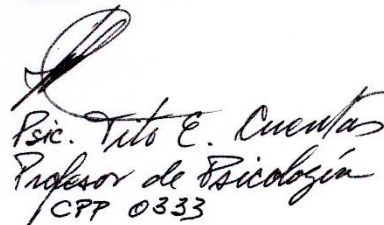 Psic. Tito E. Cuentas
Profesor de Psicología
CPP 0333